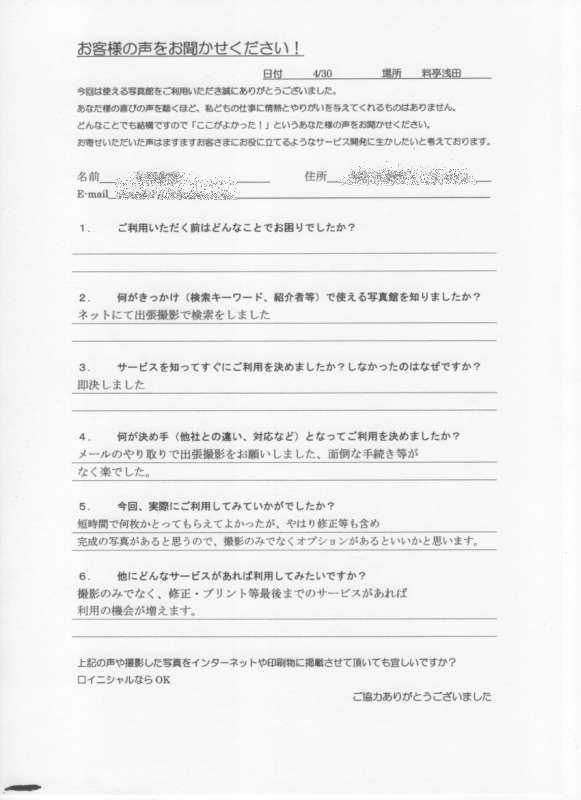 お客様の声をお聞かせください！
日付 4/30 場所 料亭浅田
今回は使える写真館をご利用いただき誠にありがとうございました。
あなた様の喜びの声を聴くほど、私どもの仕事に情熱とやりがいを与えてくれるものはありません。
どんなことでも結構ですので「ここがよかった！」というあなた様の声をお聞かせください。
お寄せいただいた声はますますお客さまにお役に立てるようなサービス開発に生かしたいと考えております。
名前 住所
E-mail
１． ご利用いただく前はどんなことでお困りでしたか？
２． 何がきっかけ（検索キーワード、紹介者等）で使える写真館を知りましたか？
ネットにて出張撮影で検索をしました
３． サービスを知ってすぐにご利用を決めましたか？しなかったのはなぜですか？
即決しました
４． 何が決め手（他社との違い、対応など）となってご利用を決めましたか？
メールのやり取りで出張撮影をお願いしました、面倒な手続き等が
なく楽でした。
５． 今回、実際にご利用してみていかがでしたか？
短時間で何枚かとってもらえてよかったが、やはり修正等も含め
完成の写真があると思うので、撮影のみでなくオプションがあるといいかと思います。
６． 他にどんなサービスがあれば利用してみたいですか？
撮影のみでなく、修正・プリント等最後までのサービスがあれば
利用の機会が増えます。
上記の声や撮影した写真をインターネットや印刷物に掲載させて頂いても宜しいですか？
□イニシャルなら OK
ご協力ありがとうございました